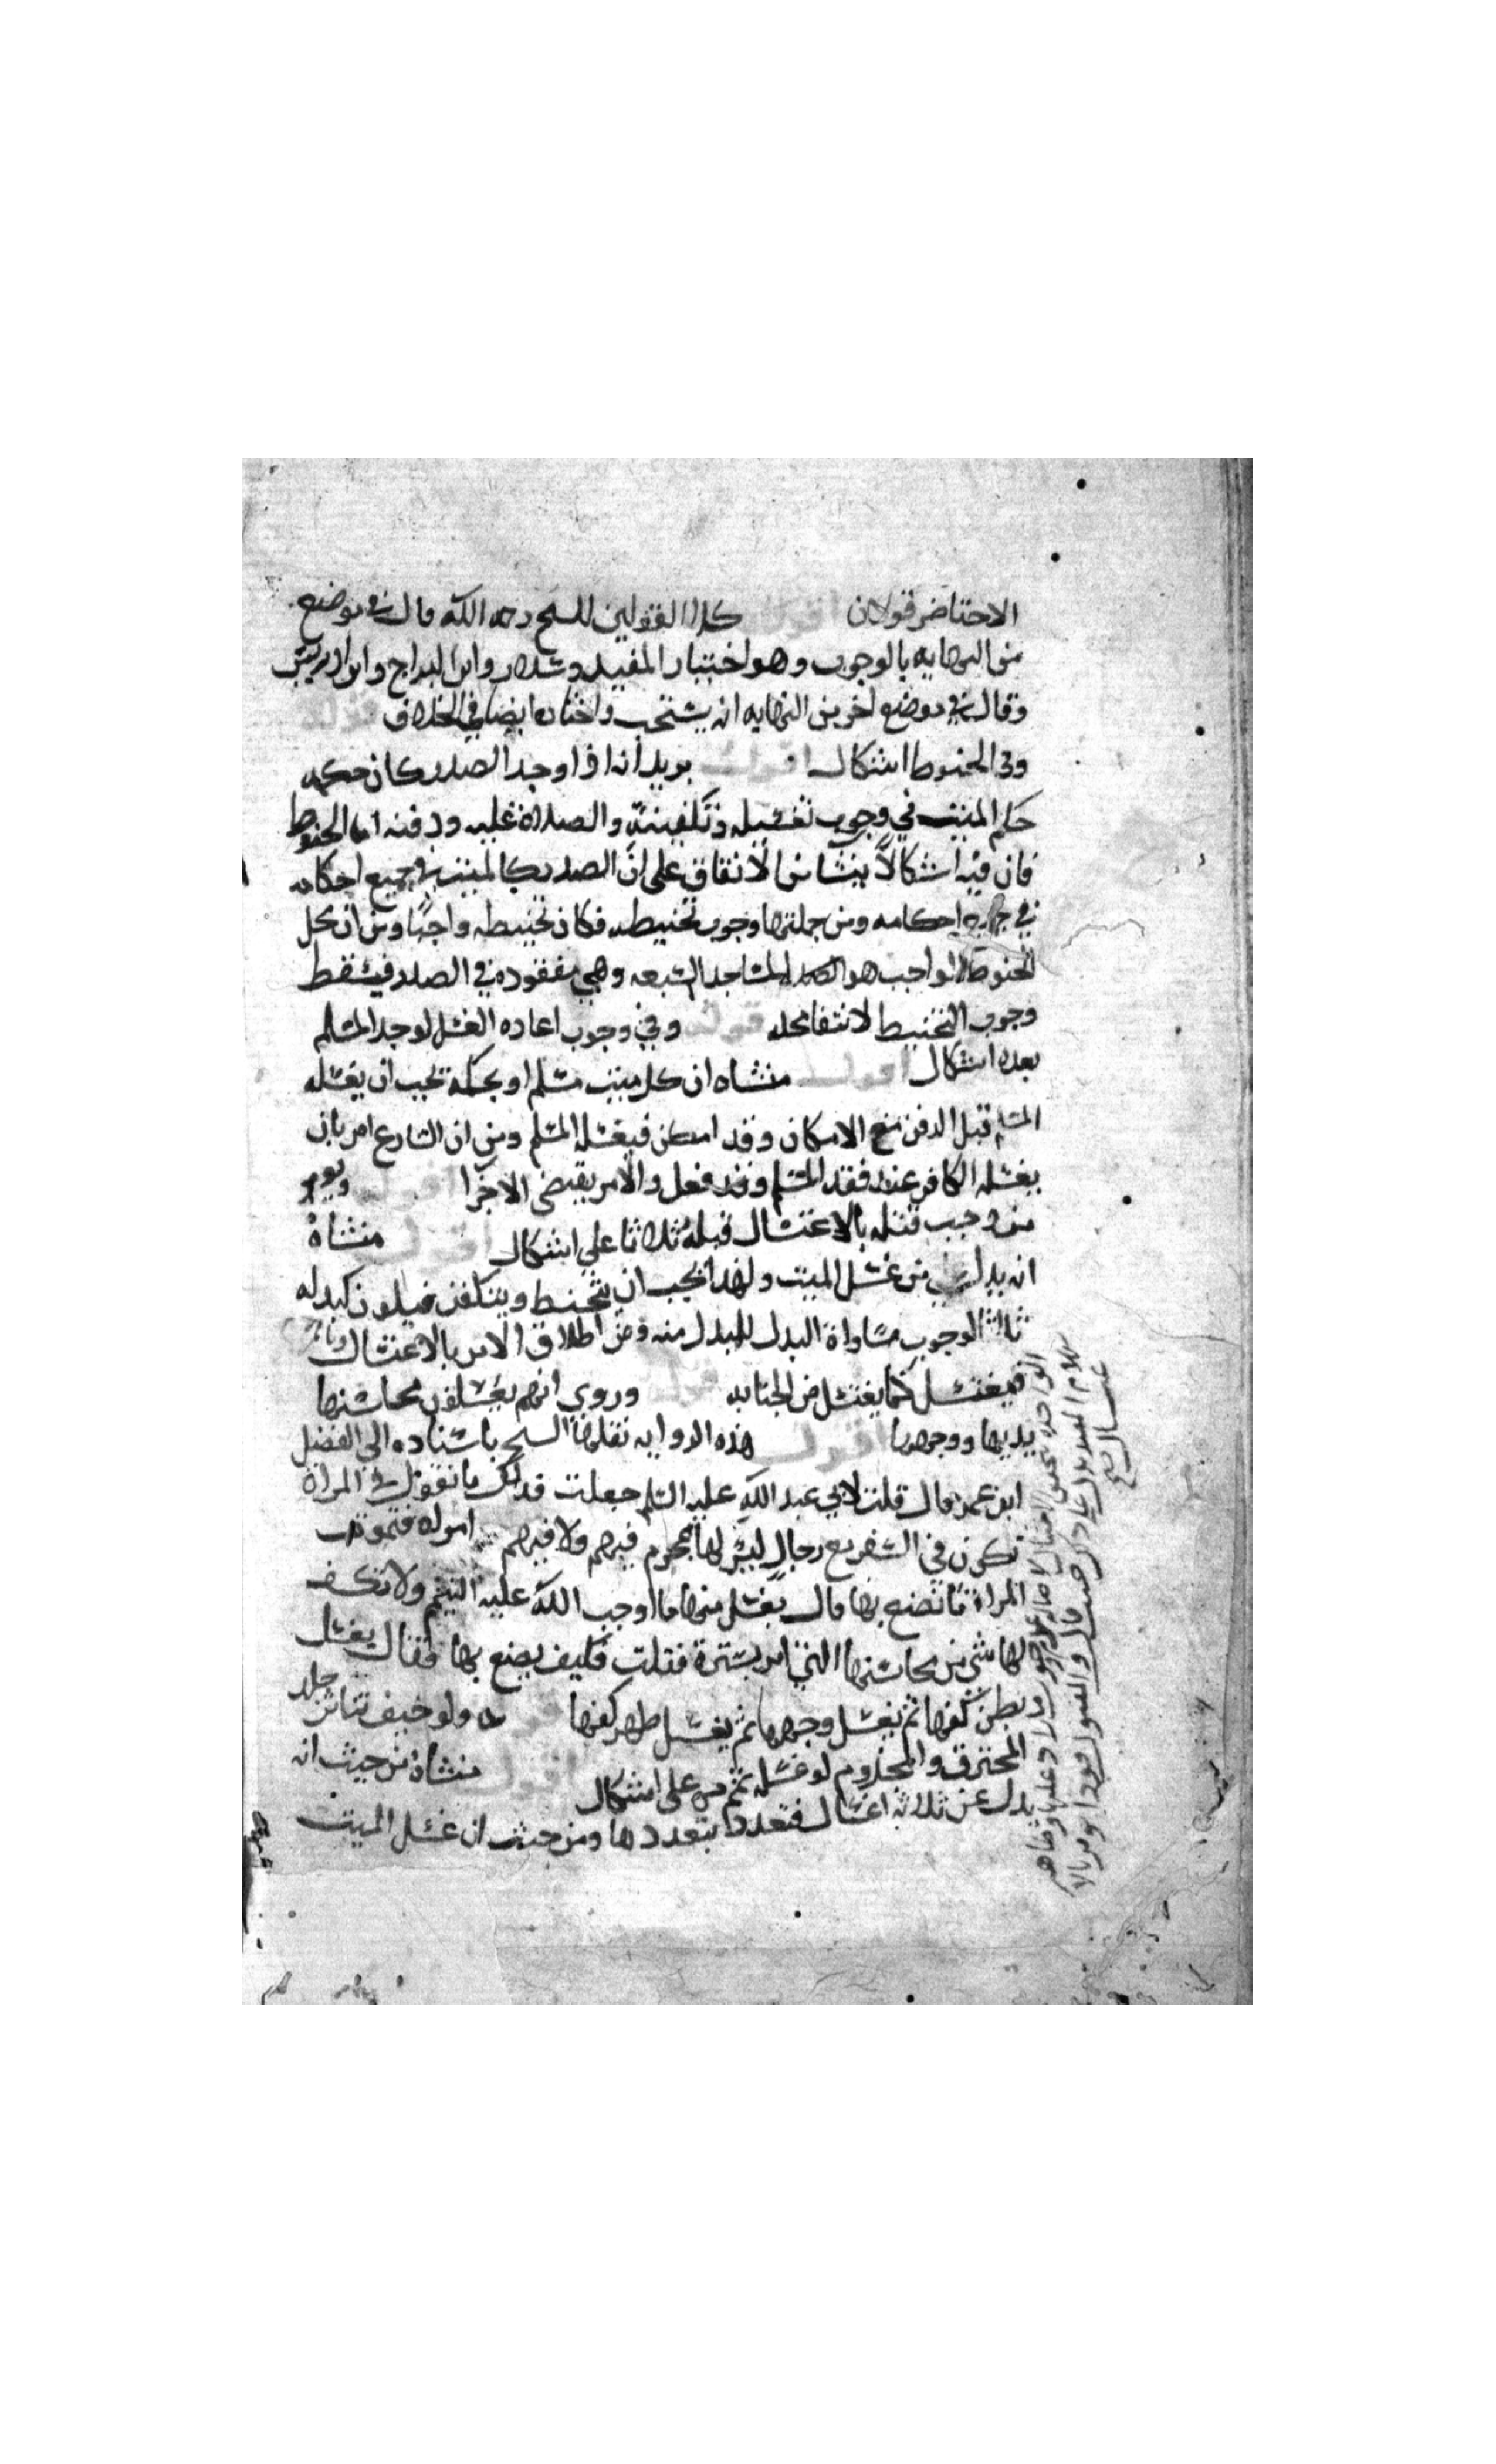 الاحتضار قولان اقول كلا القولين للشيخ رحمه الله قال في موضع
من النهايه بالوجوب وهو اختيار المفيد وسلار وابن البراج وابن ادريس
وقال في موضع اخر من النهايه انه يستحب واختاره ايضا في الخلاف قوله
وفي الحنوط اشكال اقول يريد انه اذا وجد الصدر كان حكمه
حكم الميت في وجوب تغسيله وتكفينه والصلاة عليه ودفنه اما الحنوط
فان فيه اشكالا ينشا من الاتفاق على ان الصدر كالميت في جميع احكامه
في جميع احكامه ومن جملتها وجوب تحنيطه فكان تحنيطه واجبا ومن ان محل
الحنوط الواجب هو المساجد السبعه وهي مفقوده في الصدر فيسقط
وجوب التحنيط لانتفا محله قوله وفي وجوب اعاده الغسل لو وجد المسلم
بعده اشكال اقول منشاه ان كل ميت مسلم او بحكمه يجب ان يغسله
المسلم قبل الدفن مع الامكان وقد امكن فيغسله المسلم ومن ان الشارع امر بان
يغسله الكافر عند فقد المسلم وقد فعل والامر يقتضي الاجزا اقول ويومر
من وجب قتله بالاغتسال قبله ثلاثا على اشكال اقول منشاه
انه بدل من غسل الميت ولهذا يجب ان يتحنط ويتكفن فيكون كبدله
ثلاثا لوجوب مساواة البدل للمبدل منه ومن اطلاق الامر بالاغتسال
فيغتسل كما يغتسل من الجنابه قوله وروي انهم يغسلون محاسنها
يديها ووجهها اقول هذه الروايه نقلها الشيخ باسناده الى المفضل
ابن عمر قال قلت لابي عبد الله عليه السلم جعلت فداك ما تقول في المراة
تكون في السفر مع رجال ليس لها محرم فيهم ولا فيهم امراه فتموت
المراة ما تصنع بها قال يغسل منها ما اوجب الله عليه التيمم ولا تكشف
لها شي من محاسنها التي امر بسترة فقلت فكيف يصنع بها فقال يغسل
بطن كفها ثم يغسل وجهها ثم يغسل ظهر كفها قوله ولو خيف تناثر جلد
المحترق والمجذوم لو غسله يمم على اشكال اقول منشاه من حيث انه
بدل عن ثلاثه اغسال فتعدد بتعددها ومن حيث ان غسل الميت